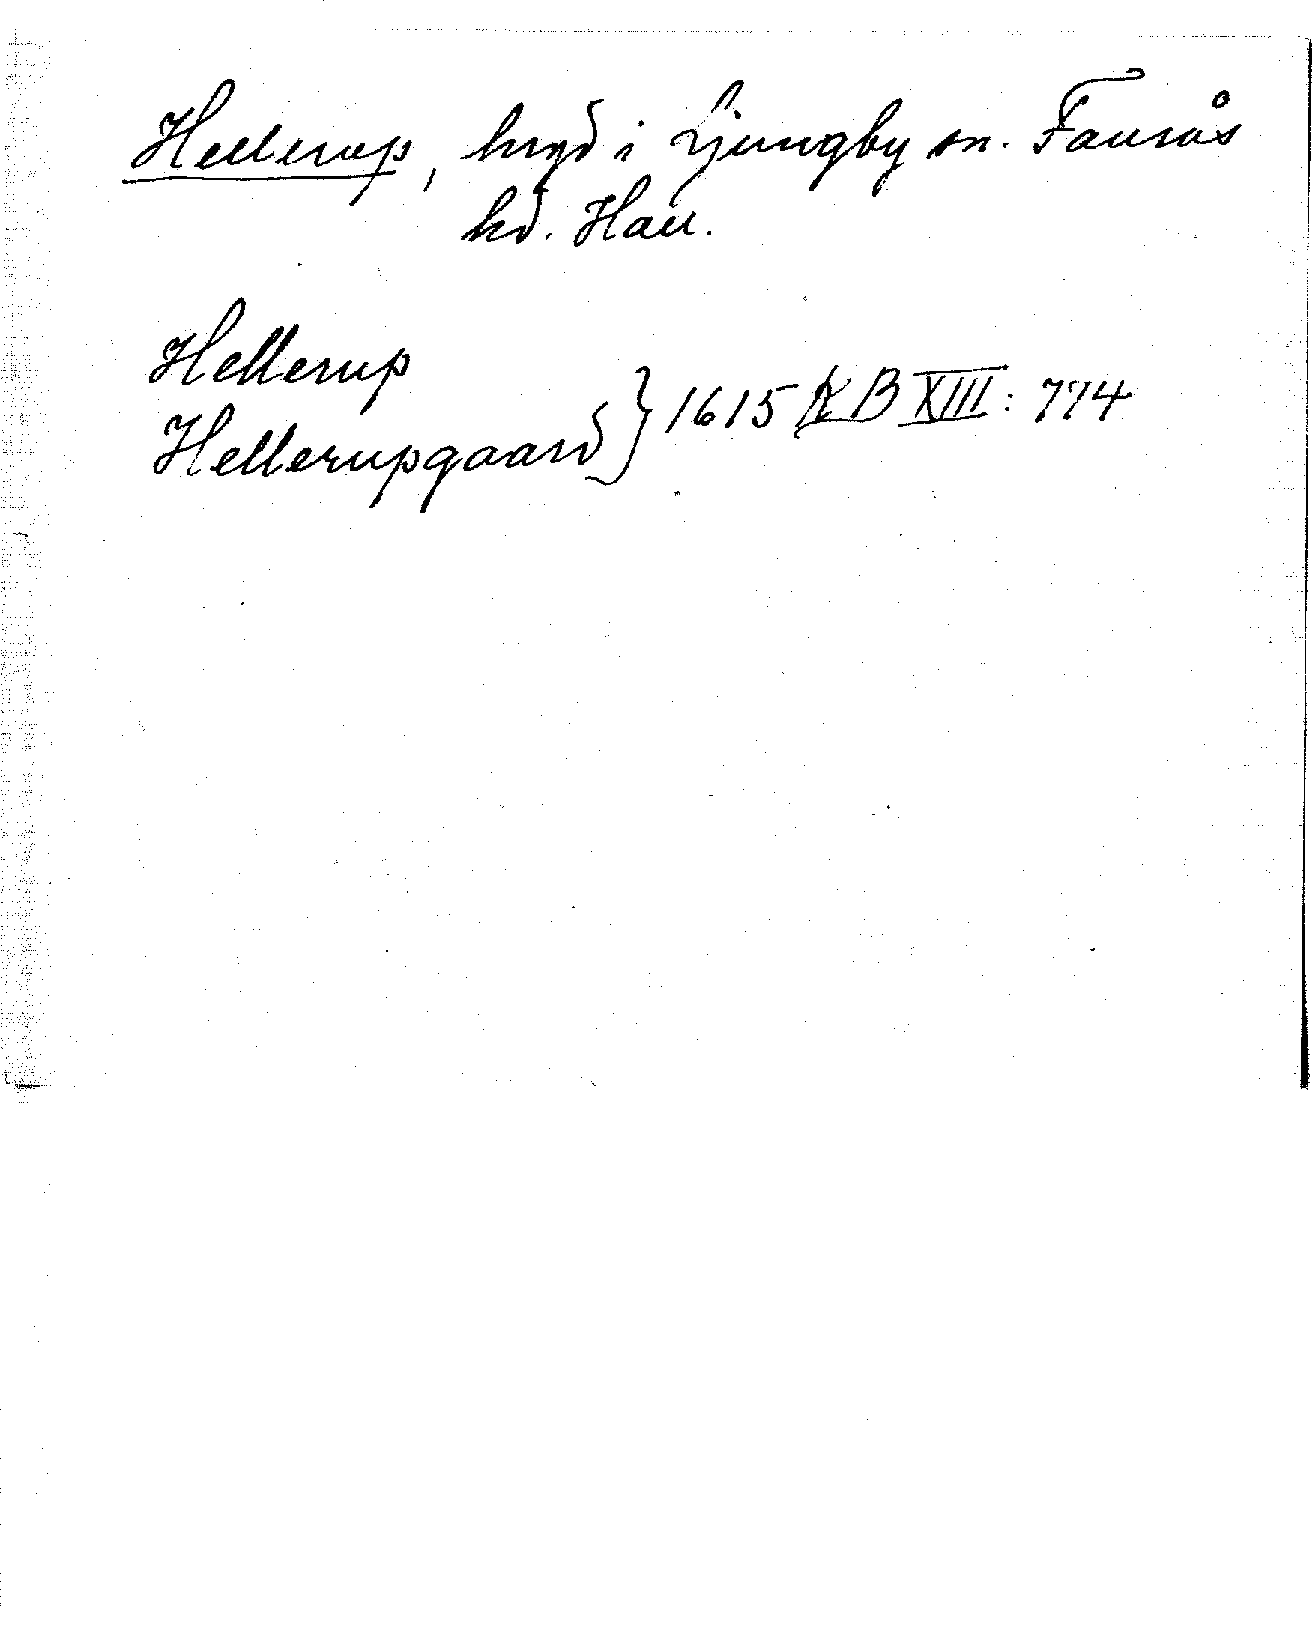 Hellerup, hrgd i Ljungby sn. Faurås
hd. Hall.
Hellerup
Hellerupgaard } 1615 KB XIII: 774